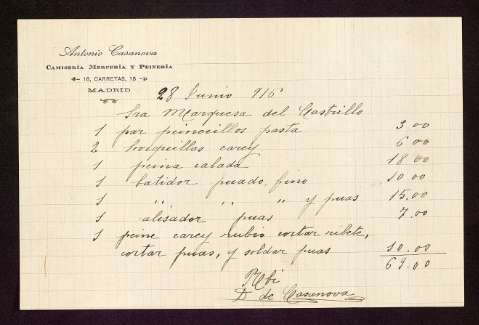 Antonio Casanova
CAMISERÍA MERCERÍA Y PEINERÍA
16, CARRETAS, 16
MADRID
28 Junio 916
Sra Marquesa del Castrillo
1 par peinecillos pasta 3.00
2 horquillas carey 6.00
1 peine calada 18.00
1 batidor picado fino 10.00
1 " " " " y puas 15.00
1 alisador puas 7.00
1 peine carey rubio cortar ribete,
cortar puas, y soldar puas 10.00
69.00
Rbi
D. de Casanova